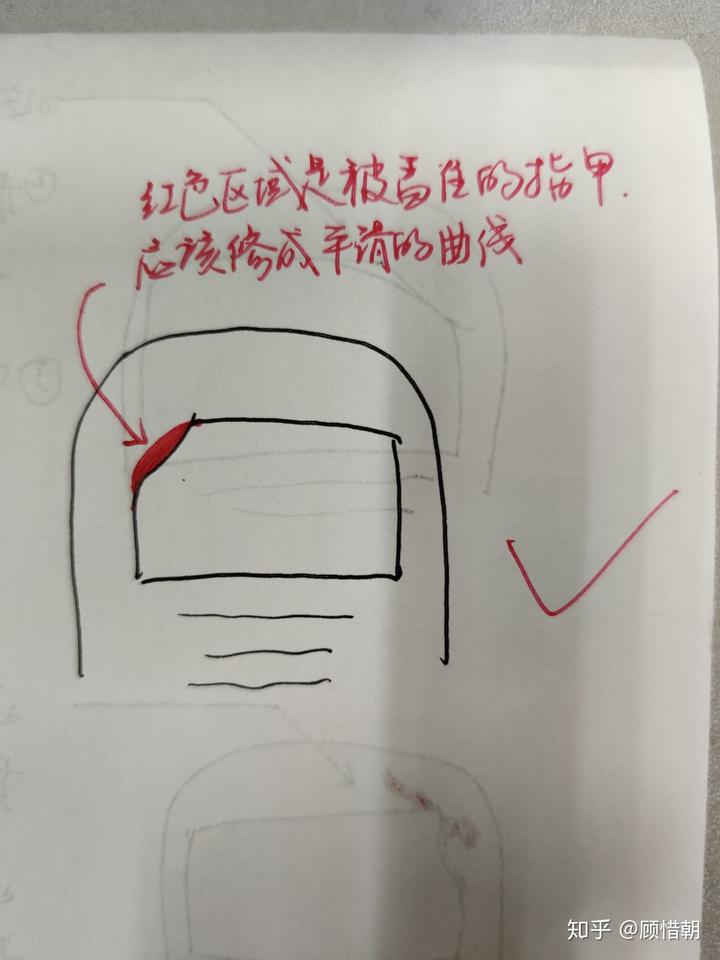 红色区域是被盖住的指甲.
应该修成平滑的曲线
知乎 @顾惜朝